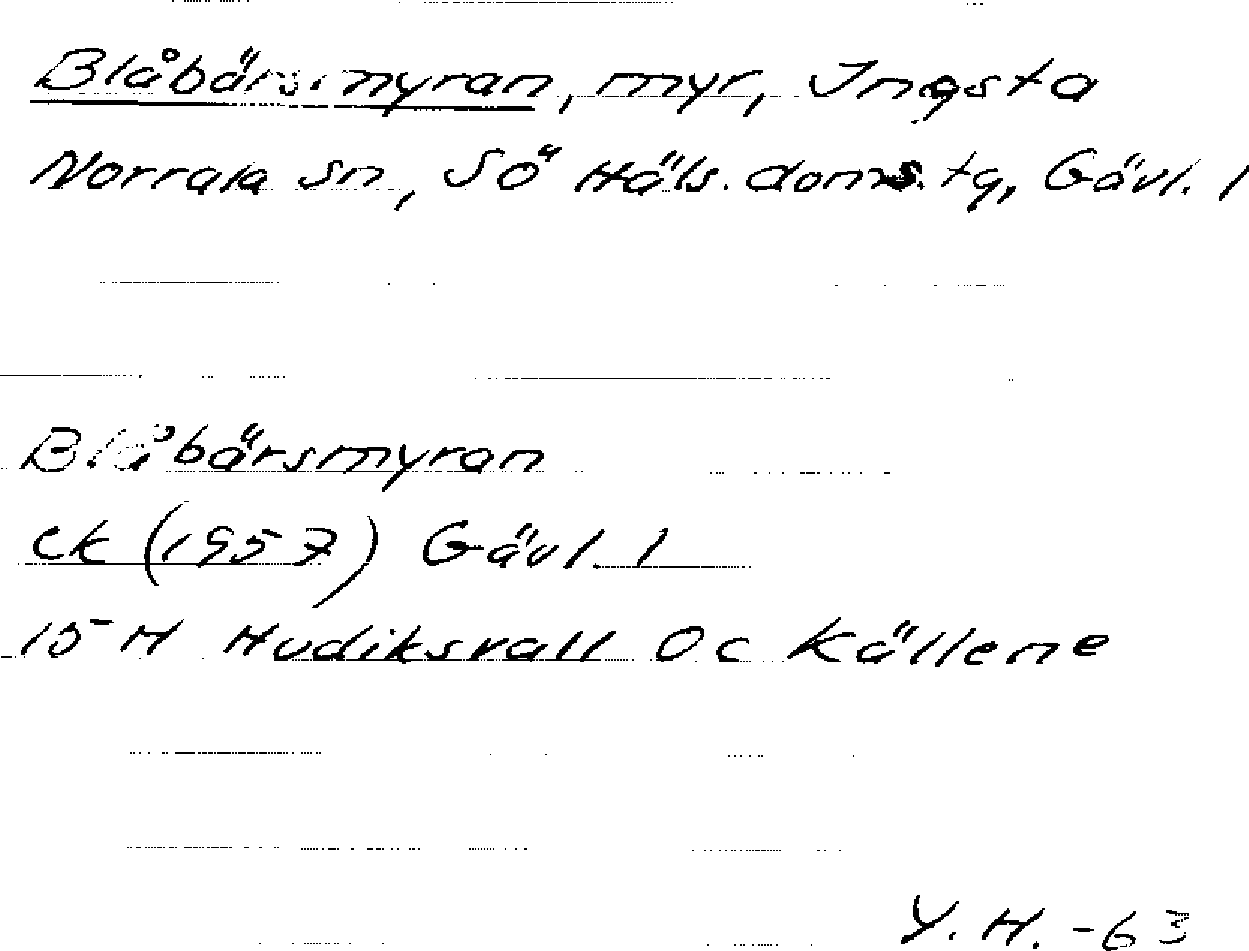 Blåbärsmyran, myr, Ingsta
Norrala sn, Sö Häls. doms. tg, Gävl. l
Blåbärsmyran
ek (1957) Gävl. l
15 H Hudiksvall 0c Källene
Y. H. -63